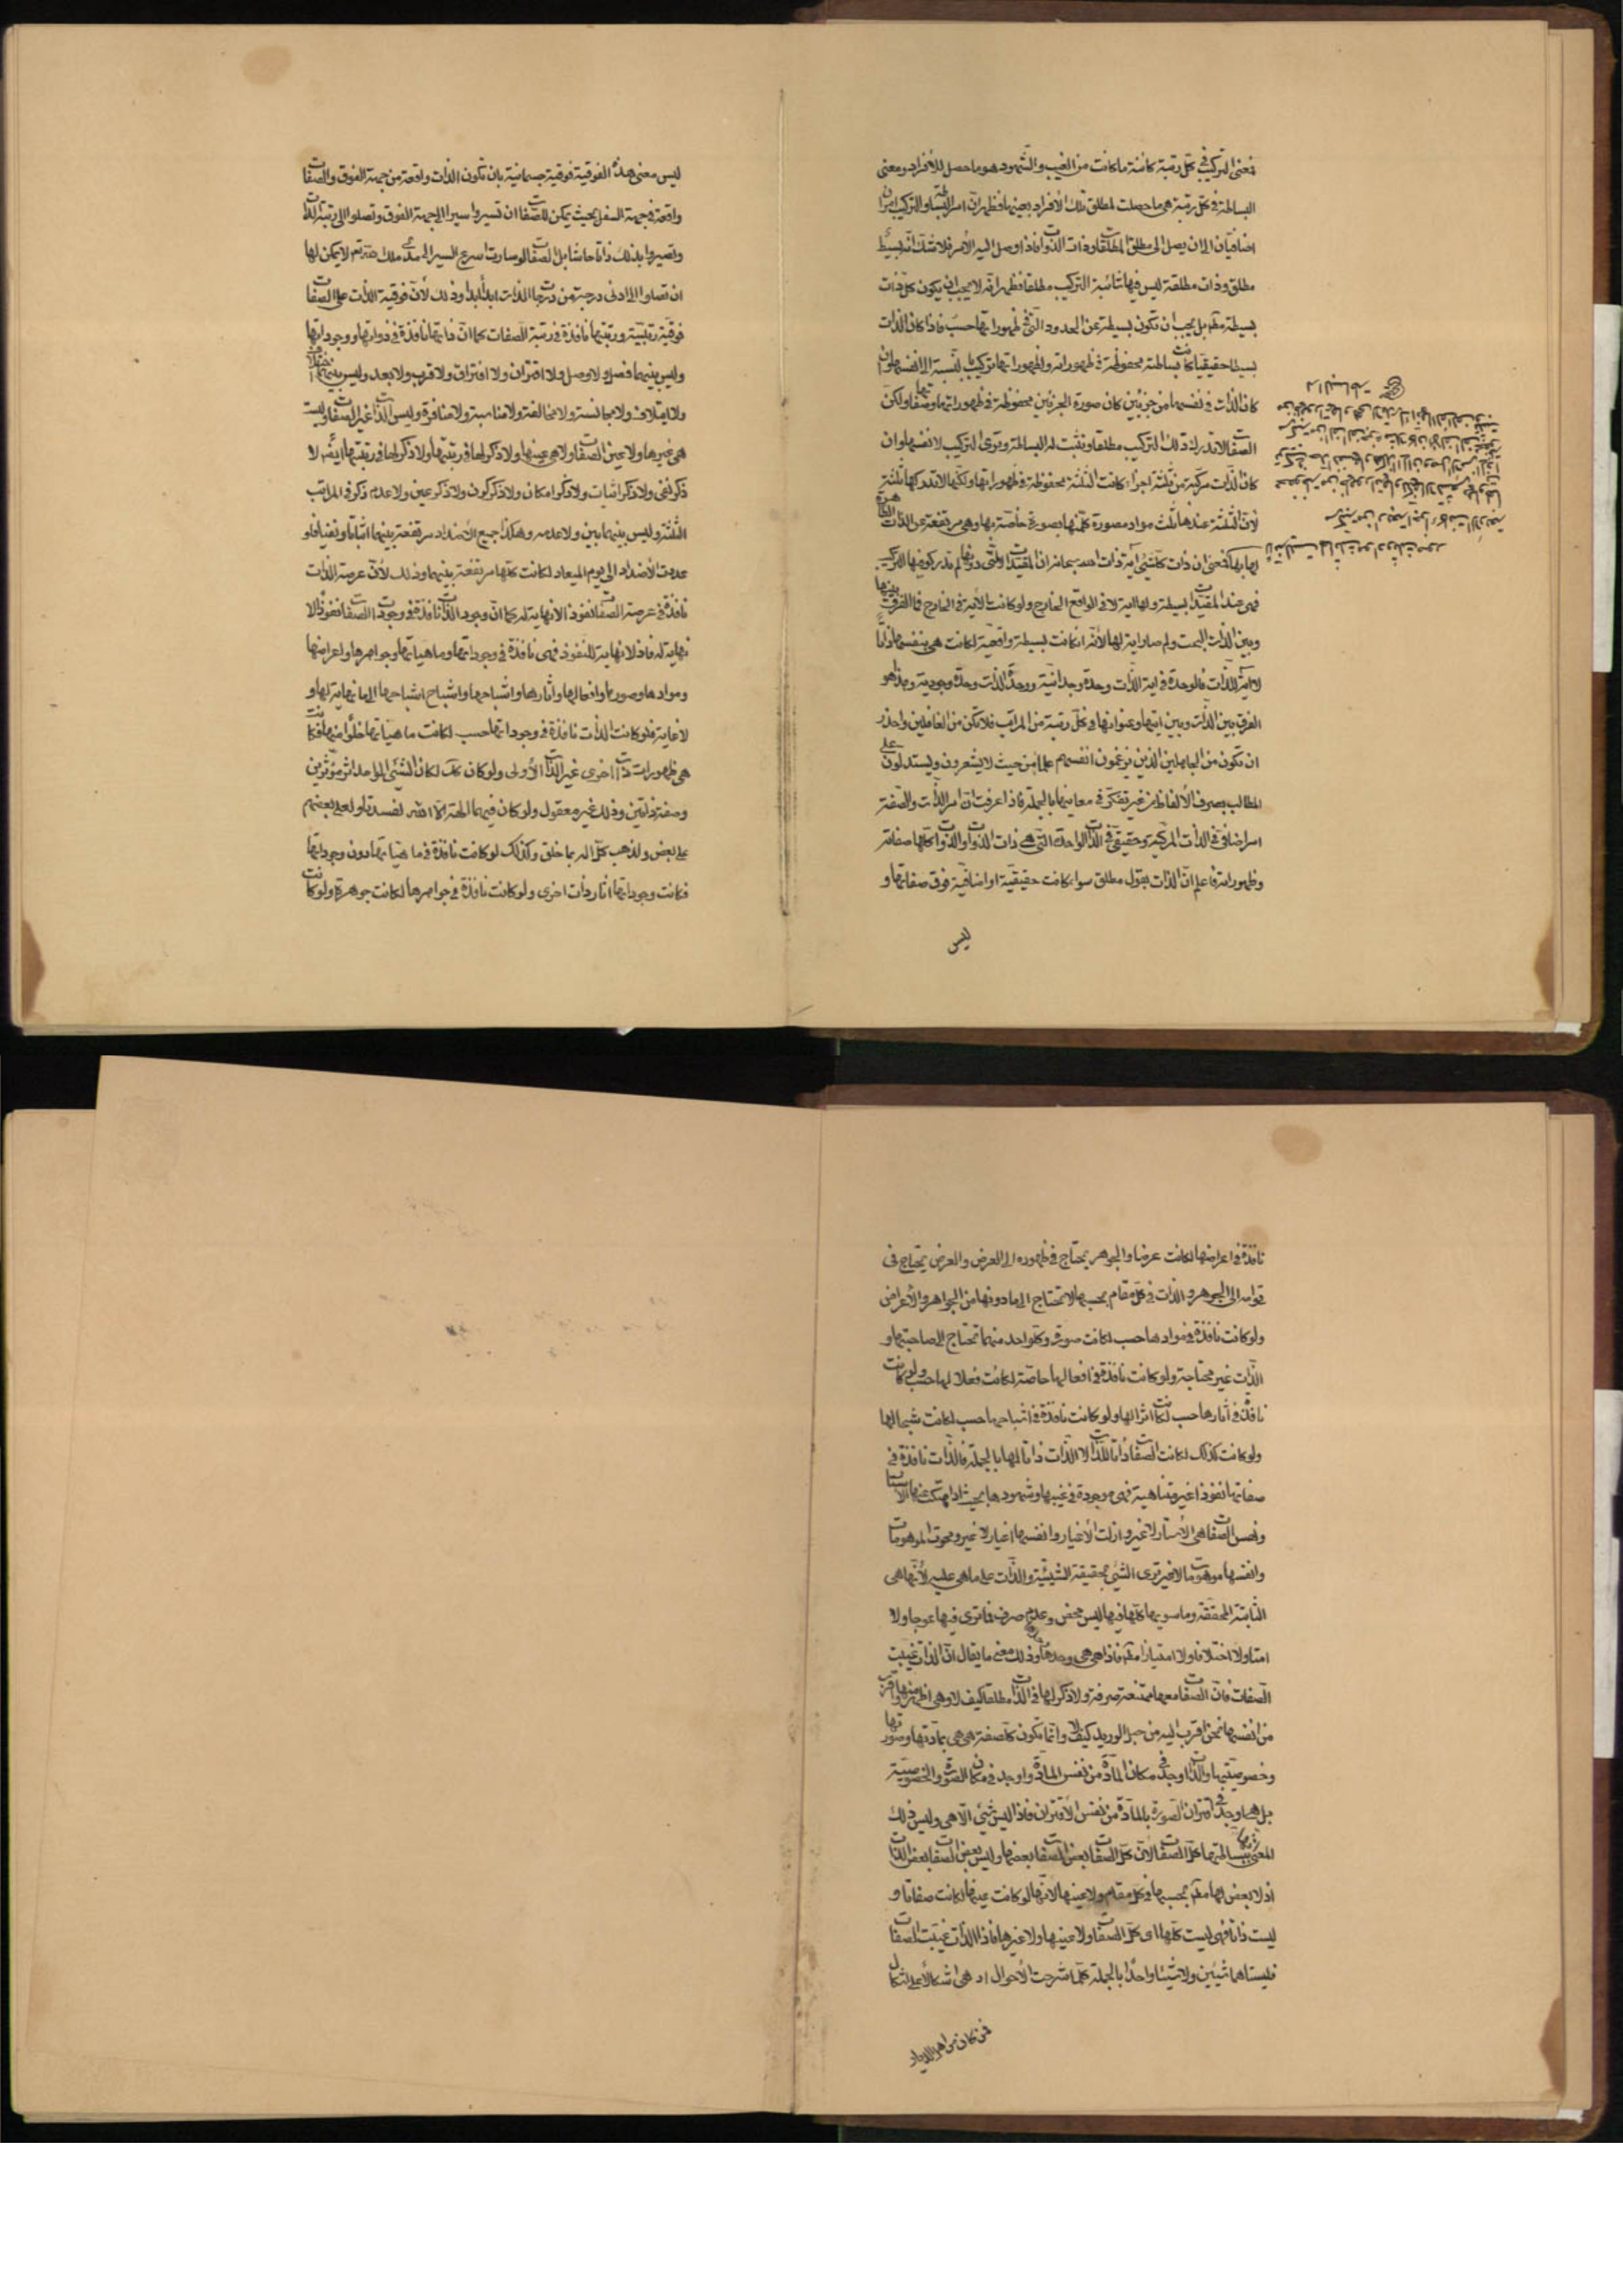 فمعنى التركيب في كل رتبة كائنة ما كانت من الغيب والشهود هو ما حصل للأفراد ومعنى
البساطة في كل رتبة هي ما حصلت لمطلق تلك الأفراد بعينها فظهر ان امر البساطة والتركيب امران
اضافيان الى ان يصل الى مطلق المطلقات وذات الذوات فاذا وصل اليه الأمر فلا شك انه بسيط
مطلق وذات مطلقة ليس فيها شائبة التركيب مطلقا فظهر انه لا يجب ان يكون كل ذات
بسيطة مطم بل يجب ان تكون بسيطة عن الحدود التي في ظهوراتها حسب فاذا كان الذات
بسيطا حقيقيا كانت بساطته محفوظة في ظهوراته وظهوراتها تركيب بالنسبة الى انفسها وان
كان الذات في نفسها من جزئين كان صورة الجزئين محفوظة في ظهوراتها وصفاتها ولكن
الصفات لا تدرك ذلك التركيب مطلقا وتثبت له البساطة وترى التركيب لانفسها وان
كان الذات مركبة من ثلثة اجزاء كانت الثلثة محفوظة في ظهوراتها ولكنها لا تدركها ثلثة
لأن الثلثة عندها ثلث مواد مصورة كلها بصورة خاصة بها وهي مرتفعة عن الذات الظاهرة
لها بها فمعنى ان ذات كل شيء آية ذات الله سبحانه ان المقيدات التي دونها لم تدركو فيها التركيب
فهي عند المقيدات بسيطة ولها آية لا في الواقع الخارج ولو كانت بالآية في الخارج فما الفرق بينها
وبين الذات البحت ولم صارت آية لها لأنه ان كانت بسيطة واقعية لكانت هي بنفسها ذاتا
لا آية للذات فالوحدة في آية الذات وحدة وجدانية ووحدة الذات وحدة وجودية وهذا هو
الفرق بين الذات وبين آيتها وعنوانها في كل رتبة من المراتب فلا تكن من الغافلين واحذر
ان تكون من الجاهلين الذين يزعمون انفسهم علماء من حيث لا يشعرون ويستدلون على
المطالب بصرف الألفاظ من غير تفكر في معانيها بالجملة فاذا عرفت ان امر الذات والصفة
امر اضافي في الذات المركبة وحقيقي في الذات الواحدة التي هي ذات الذوات والذوات كلها صفاته
وظهوراته فاعلم ان الذات بقول مطلق سواء كانت حقيقية او اضافية فوق صفاتها و
ليس
ليس معنى هذه الفوقية فوقية جسمانية بان تكون الذات واقعة من جهة الفوق والصفات
واقعة في جهة السفل بحيث يمكن للصفات ان تسيروا سيرا الى جهة الفوق وتصلوا الى رتبة الذات
وتصيروا بذلك ذاتا حاشا بل الصفات لو سارت اسرع السير الى مدى ملك الله ثم لا يمكن لها
ان تصلوا الى ادنى درجة من درجات الذات ابدا ابدا وذلك لأن فوقية الذات على الصفات
فوقية رتبية ورتبتها نافذة في رتبة الصفات كما ان ذاتها نافذة في ذواتها ووجوداتها
وليس بينهما فصل ولا وصل ولا اقتران ولا افتراق ولا قرب ولا بعد وليس بينهما اختلاف
ولا ايتلاف ولا مجانسة ولا مخالفة ولا مناسبة ولا منافرة وليس الذات غير الصفات وليست
هي غيرها ولا عين الصفات ولا هي عينها ولا ذكر لها في رتبتها ولا ذكر لها في رتبتها ايضا لا
ذكر نفي ولا ذكر اثبات ولا ذكر امكان ولا ذكر كون ولا ذكر عين ولا عدم ذكر في المراتب
الثلثة وليس بينهما بين ولا عدمه وهكذا جميع الأضداد مرتفعة بينهما اثباتا ونفيا فلو
عددت الأضداد الى يوم الميعاد لكانت كلها مرتفعة بينهما وذلك لأن عرصة الذات
نافذة في عرصة الصفات نفوذا لا نهاية له كما ان وجود الذات نافذة في وجود الصفات نفوذا لا
نهاية له فاذ لا نهاية للنفوذ فهي نافذة في وجوداتها وماهياتها وجواهرها واعراضها
وموادها وصورها وافعالها وآثارها واشباحها واشباح اشباحها الى ما لا نهاية لها و
لا غاية فلو كانت الذات نافذة في وجوداتها حسب لكانت ماهياتها خلوا منها فكانت
هي ظهورات ذات اخرى غير الذات الأولى ولو كان كك لكان الشيء الواحد اثر مؤثرين
وصفة ذاتين وذلك غير معقول ولو كان فيهما آلهة الا الله لفسدتا ولعلى بعضهم
على بعض ولذهب كل اله بما خلق وكذلك لو كانت نافذة في ماهياتها دون وجوداتها
فكانت وجوداتها آثار ذات اخرى ولو كانت نافذة في جواهرها لكانت جوهرة ولو كانت
نافذة في اعراضها لكانت عرضا والجوهر يحتاج في ظهوره الى العرض والعرض يحتاج في
قوامه الى الجوهر والذات في كل مقام بحسبها لا تحتاج الى ما دونها من الجواهر والأعراض
ولو كانت نافذة في موادها حسب لكانت صورة وكلواحد منهما تحتاج الى صاحبتها و
الذات غير محتاجة ولو كانت نافذة في افعالها خاصة لكانت فعلا لها حسب ولو كانت
نافذة في آثارها حسب لكانت اثرا لها ولو كانت نافذة في اشباحها حسب لكانت شبحا لها
ولو كانت كذلك لكانت الصفات ذاتا للذات لا الذات ذاتا لها بالجملة فالذات نافذة في
صفاتها نفوذا غير متناهية فهي موجودة في غيبها وشهودها بحيث اذا هتكت عنها الأستار
ونفس الصفات هي الأستار لا غير وازلت الأغيار وانفسها اغيار لا غير ومحوت الموهومات
وانفسها موهومات لا غير ترى الشيء بحقيقة الشيئية والذات على ما هي عليه لأنها هي
الثابتة المحققة وما سويها كلها فيها ليس محض وعدم صرف فما ترى فيها عوجا ولا
امتا ولا اختلافا ولا امتيازا مطم فاذا هي هي وحدها وذلك معنى ما يقال ان الذات غيبت
الصفات فان الصفات معها ممتنعة صرفة ولا ذكر لها في الذات مطلقا كيف لا وهي اظهر منها واقرب
من انفسها نحن اقرب اليه من حبل الوريد كيف لا وانما تكون كل صفة هي هي بمادتها وصورتها
وخصوصيتها والذات اوجد في مكان المادة من نفس المادة واوجد في مكان الصورة والخصوصية
بل هما واوجد في اقتران الصورة بالمادة من نفس الأقتران فاذا ليس شيء الا هي وليس ذلك
المعنى ببساطتها كل الصفات لأن كل الصفات بعض الصفات بعضها وليس بعض الصفات بعض الذات
اذ لا بعض لها مطم بحسبها في كل مقام ولا عينها لأنها لو كانت عينها لكانت صفاتا و
ليست ذاتا فهي ليست كلها اي كل الصفات ولا عينها ولا غيرها فاذا الذات غيبت الصفات
فليستا هما شيئين ولا شيئا واحدا بالجملة كلما شرحت الأحوال اد هي اشكالا على اشكال
فمن كان من اهل الديار